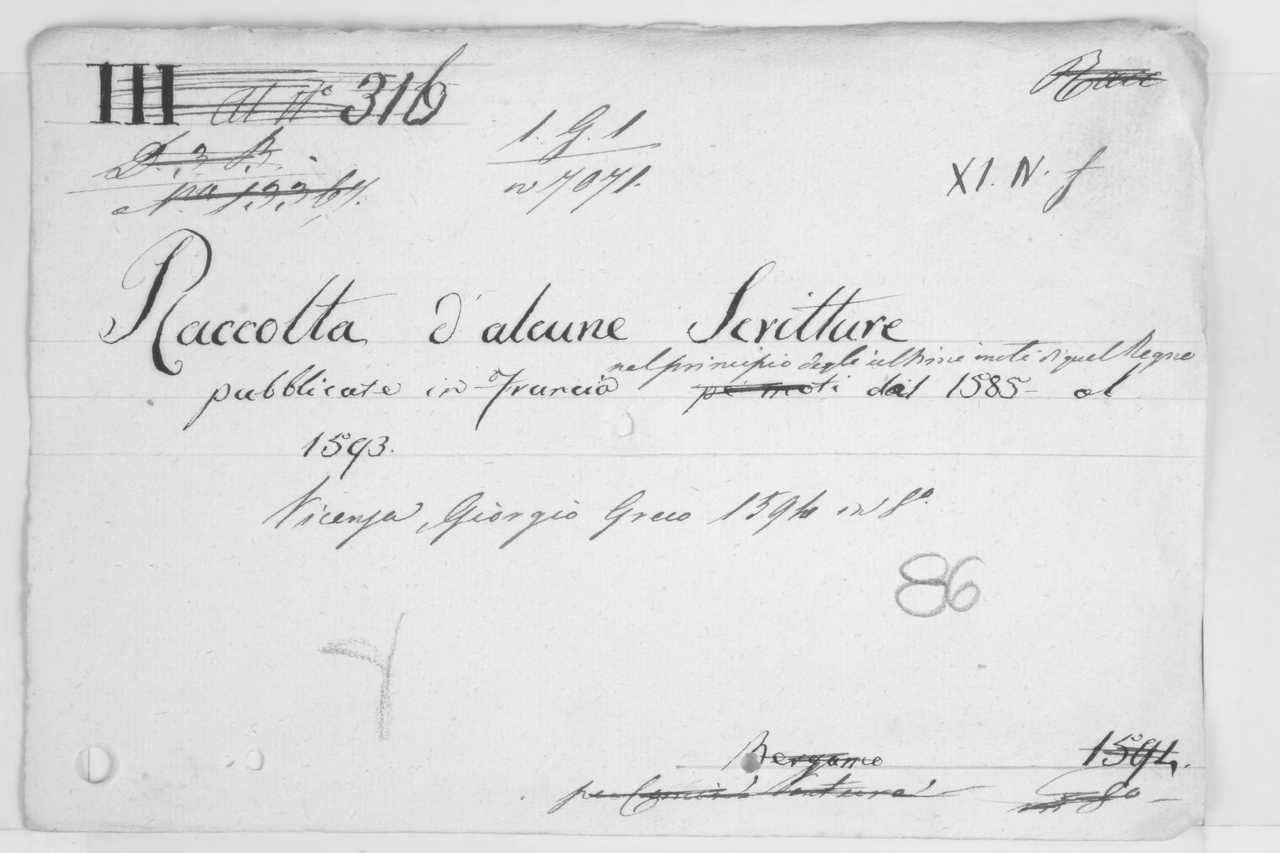 III Al N° 316
Racc
D. 3. B.
1. G. 1
n 7071.
XI. N. f
Raccolta d'alcune Scritture
nel principio degli ultimi moti di quel Regno
pubblicate in Francia pei moti dal 1585 al
1593.
Vicenza, Giorgio Greco 1594 in 8°.
86
Bergamo 1594.
per Comino Ventura in 8°